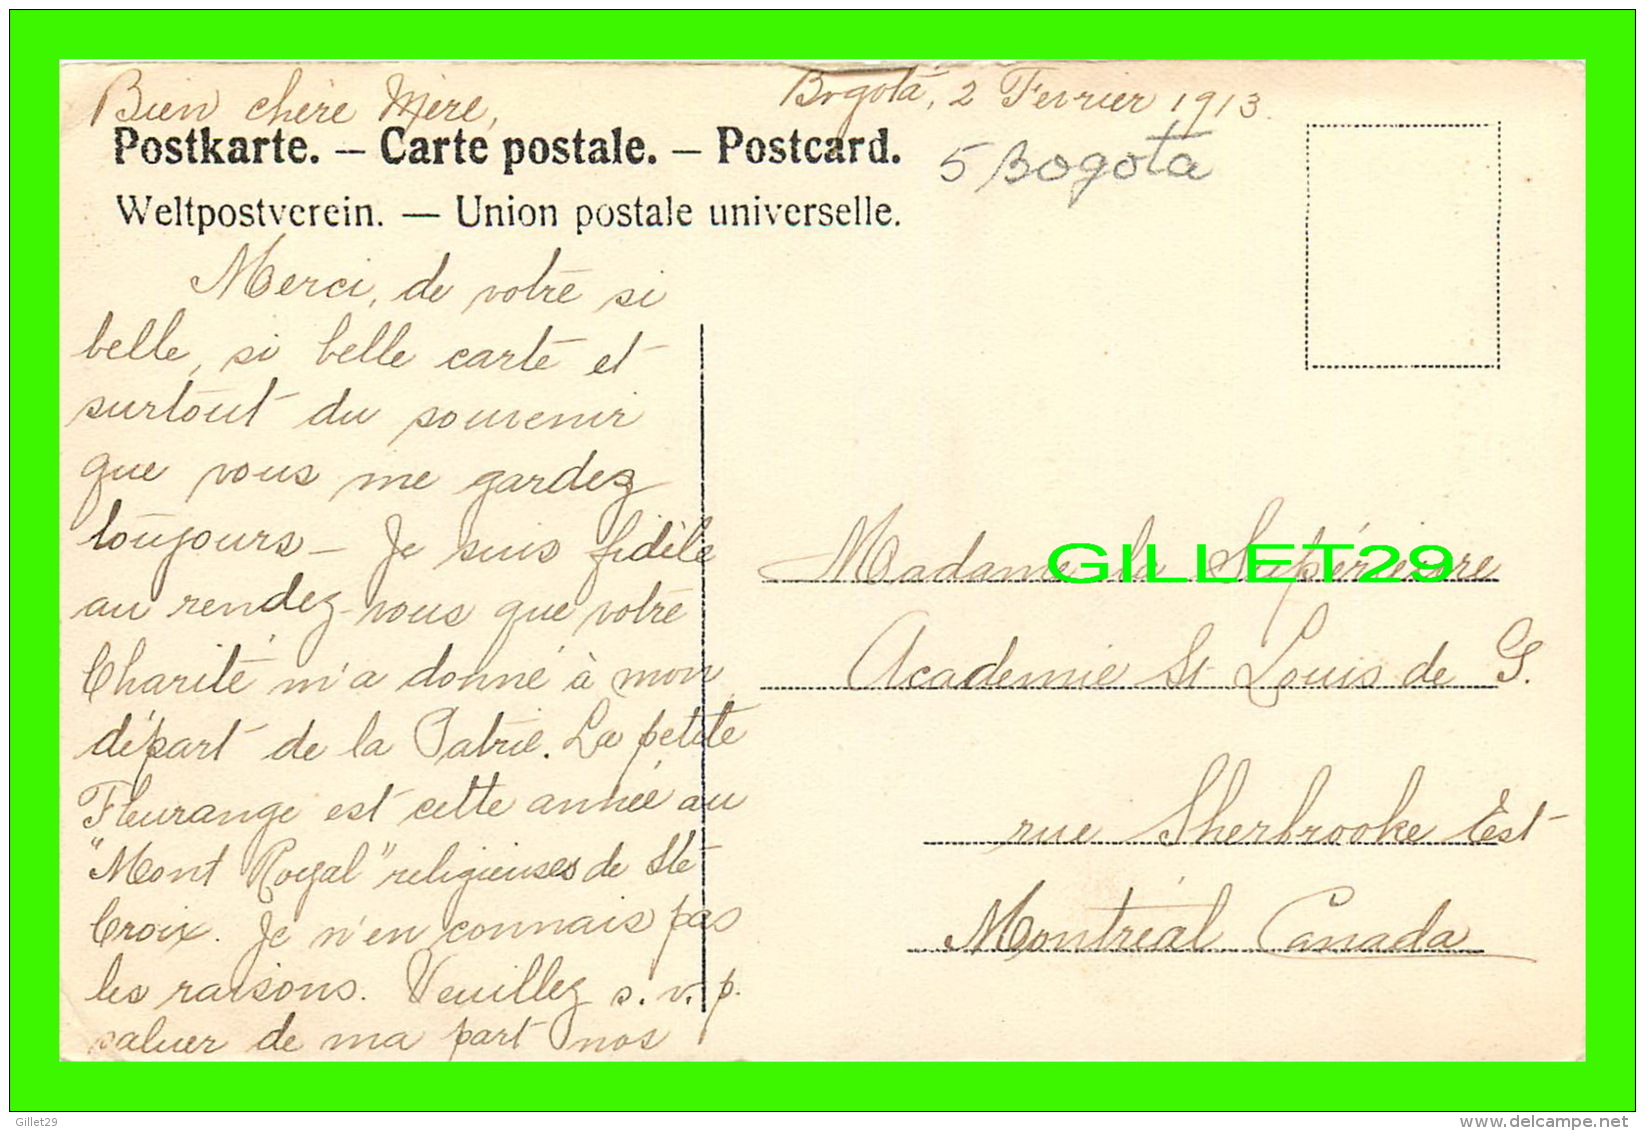 Bien chère Mère,
Bogotá, 2 Fevrier 1913.
Postkarte. – Carte postale. – Postcard.
5 Bogota
Weltpostverein. — Union postale universelle.
Merci, de votre si
belle, si belle carte et
surtout du souvenir
que vous me gardez
toujours – Je suis fidèle
au rendez-vous que votre
Charité m'a donné à mon
départ de la Patrie. La petite
Fleurange est cette année au
"Mont Royal" religieuses de Ste
Croix. Je n'en connais pas
les raisons. Veuillez s.v.p.
saluer de ma part nos
Madame la Supérieure
GILLET29
Academie St Louis de G.
rue Sherbrooke Est
Montréal Canada
Gillet29
www.delcampe.net